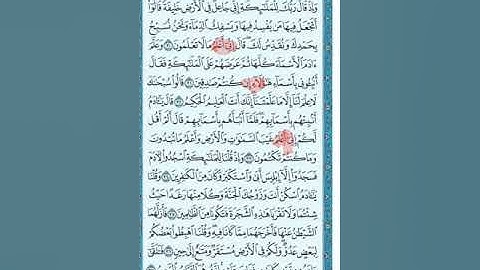 وَإِذْ قَالَ رَبُّكَ لِلْمَلَٰٓئِكَةِ إِنِّى جَاعِلٌ فِى ٱلْأَرْضِ خَلِيفَةً قَالُوٓا۟
أَتَجْعَلُ فِيهَا مَن يُفْسِدُ فِيهَا وَيَسْفِكُ ٱلدِّمَآءَ وَنَحْنُ نُسَبِّحُ
بِحَمْدِكَ وَنُقَدِّسُ لَكَ قَالَ إِنِّىٓ أَعْلَمُ مَا لَا تَعْلَمُونَ ٣٠ وَعَلَّمَ
ءَادَمَ ٱلْأَسْمَآءَ كُلَّهَا ثُمَّ عَرَضَهُمْ عَلَى ٱلْمَلَٰٓئِكَةِ فَقَالَ
أَنۢبِـُٔونِى بِأَسْمَآءِ هَٰٓؤُلَآءِ إِن كُنتُمْ صَٰدِقِينَ ٣١ قَالُوا۟ سُبْحَٰنَكَ
لَا عِلْمَ لَنَآ إِلَّا مَا عَلَّمْتَنَآ إِنَّكَ أَنتَ ٱلْعَلِيمُ ٱلْحَكِيمُ ٣٢ قَالَ يَٰٓـَٔادَمُ
أَنۢبِئْهُم بِأَسْمَآئِهِمْ فَلَمَّآ أَنۢبَأَهُم بِأَسْمَآئِهِمْ قَالَ أَلَمْ أَقُل
لَّكُمْ إِنِّىٓ أَعْلَمُ غَيْبَ ٱلسَّمَٰوَٰتِ وَٱلْأَرْضِ وَأَعْلَمُ مَا تُبْدُونَ
وَمَا كُنتُمْ تَكْتُمُونَ ٣٣ وَإِذْ قُلْنَا لِلْمَلَٰٓئِكَةِ ٱسْجُدُوا۟ لِـَٔادَمَ
فَسَجَدُوٓا۟ إِلَّآ إِبْلِيسَ أَبَىٰ وَٱسْتَكْبَرَ وَكَانَ مِنَ ٱلْكَٰفِرِينَ ٣٤ وَقُلْنَا
يَٰٓـَٔادَمُ ٱسْكُنْ أَنتَ وَزَوْجُكَ ٱلْجَنَّةَ وَكُلَا مِنْهَا رَغَدًا حَيْثُ
شِئْتُمَا وَلَا تَقْرَبَا هَٰذِهِ ٱلشَّجَرَةَ فَتَكُونَا مِنَ ٱلظَّٰلِمِينَ ٣٥ فَأَزَلَّهُمَا
ٱلشَّيْطَٰنُ عَنْهَا فَأَخْرَجَهُمَا مِمَّا كَانَا فِيهِ وَقُلْنَا ٱهْبِطُوا۟ بَعْضُكُمْ
لِبَعْضٍ عَدُوٌّ وَلَكُمْ فِى ٱلْأَرْضِ مُسْتَقَرٌّ وَمَتَٰعٌ إِلَىٰ حِينٍ ٣٦ فَتَلَقَّىٰٓ